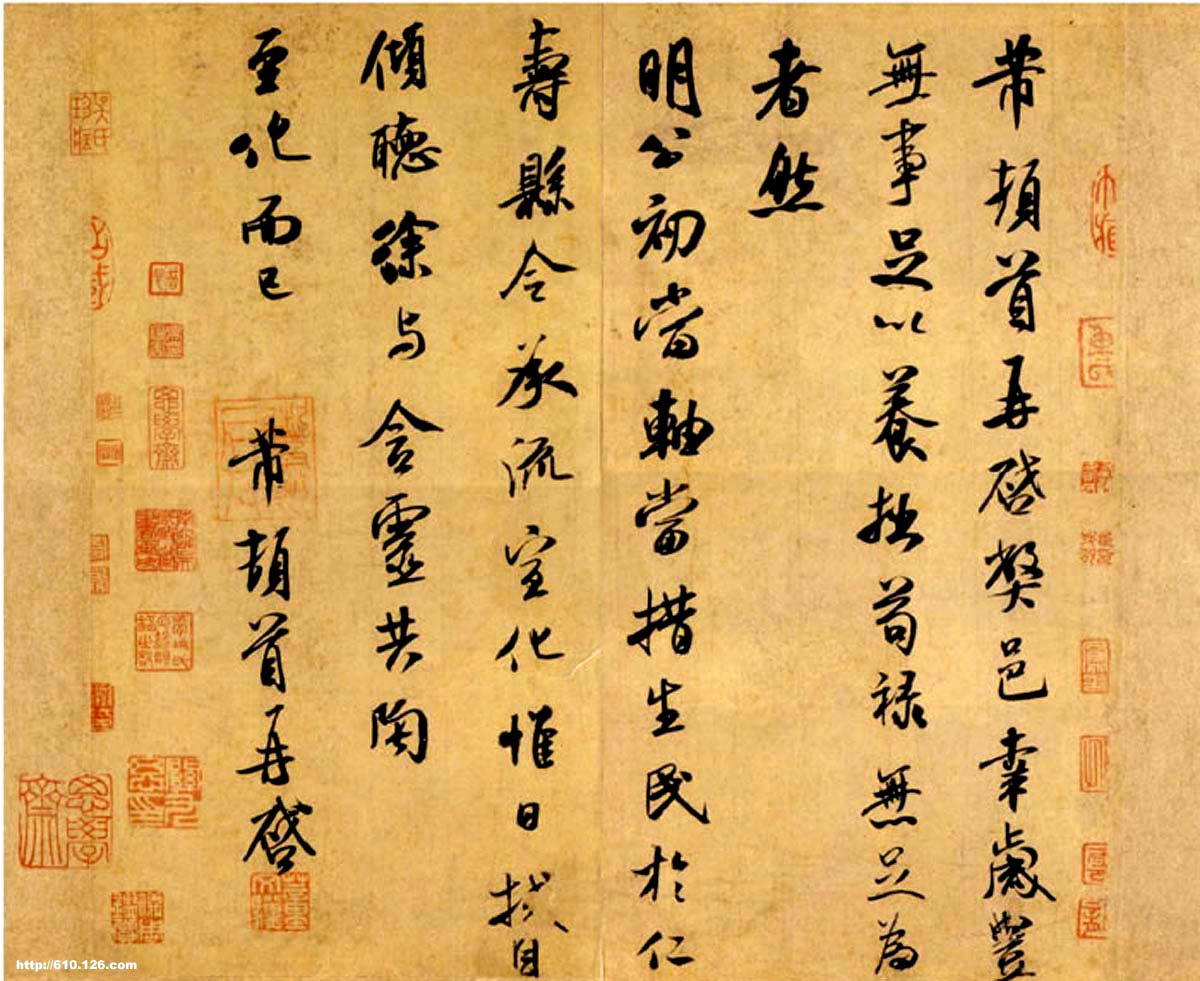 芾頓首再啓弊邑幸歲豐
無事足以養拙苟禄無足為
者然
明公初當軸當措生民於仁
壽縣令承流宣化惟日拭目
傾聽徐与含靈共陶
至化而已 芾頓首再啓
http://610.126.com